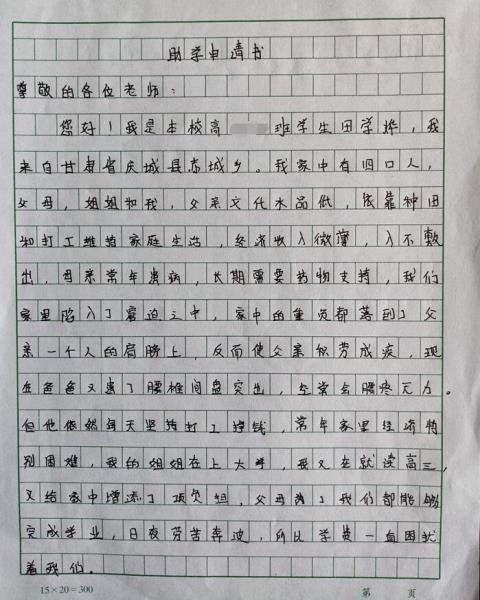 助学申请书
尊敬的各位老师：
您好！我是本校高 班学生田学烨，我
来自甘肃省庆城县赤城乡。我家中有四口人，
父母，姐姐和我，父亲文化水品低，依靠种田
和打工维持家庭生活，经济收入微薄，入不敷
出，母亲常年患病，长期需要药物支持，我们
家里陷入了窘迫之中，家中的重负都落到了父
亲一个人的肩膀上，反而使父亲积劳成疾，现
在爸爸又患了腰椎间盘突出，经常会腰疼无力。
但他依然每天坚持打工挣钱，常年家里经济特
别困难，我的姐姐在上大学，我又在就读高三，
又给家中增添了一项负担，父母为了我们都能够
完成学业，日夜劳苦奔波，所以学费一直困扰
着我们。
15×20=300
第 页